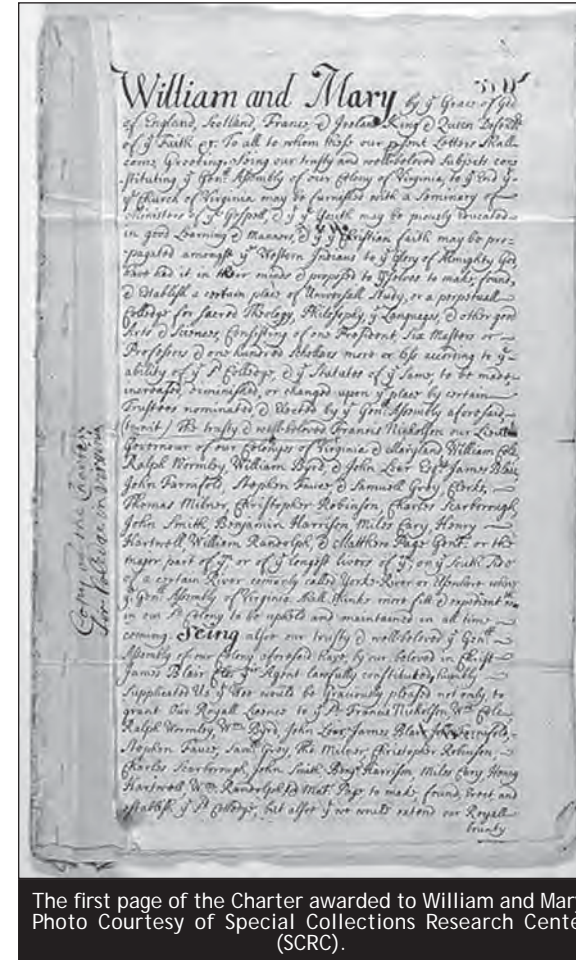 William and Mary by yͤ Grace of God
of England, Scotland, France & Ireland King & Queen Defendrs
of yͤ Faith &c. To all to whom these our psent Letters shall
come Greeting. Seing our trusty and well-beloved Subjects cons
stituting yͤ Genˡˡ Assembly of our Colony of Virginia, to yͤ End yͭ
yͤ Church of Virginia may be furnished with a Seminary of
Ministers of yͤ Gospell, & yͭ yͤ Youth may be piously educated
in good Learning & Manners, & yͭ yͤ Christian faith may be pro=
pagated amongst yͤ Western Indians to yͤ Glory of Almighty God
have had it in their minds & proposed to yͫselves to make, found,
& Establish a certain place of Universall Study, or a perpetuall
Colledge for Sacred Theology, Philosophy, yͤ Languages, & other good
Arts & Sciences, Consisting of one President Six Masters or
Professors & one hundred Schollars more or less according to yͤ
ability of yͤ sᵈ Colledge, & yͤ Statutes of yͤ same, to be made,
increased, diminished, or changed upon yͤ place by certain
Trustees nominated & Elected by yͤ Genˡˡ Assembly aforesaid,
(to wit) The trusty & well-beloved Francis Nicholson our Lieuᵗ
Governour of our Colonyes of Virginia & Maryland William Cole,
Ralph Wormley, William Byrd, & John Lear Esqʳˢ James Blair,
John Farnifold, Stephen Fauce & Samuell Grey Clerks,
Thomas Milner, Christopher Robinson, Charles Scarborough,
John Smith Benjamin Harrison Miles Cary, Henry
Hartwell William Randolph, & Matthew Page Gentⁿ or the
major part of yͫ or of yͤ longest livers of yͫ, on yͤ South side
of a certain River comonly called Yorke River or Elsewhere where
yͤ Genˡˡ Assembly of Virginia shall think more fitt & expedient
in our sᵈ Colony to be upheld and maintained in all time
coming. Seing alsoe our trusty & well-beloved yͤ Genˡˡ
Assembly of our Colony aforesaid have, by our beloved in Christ
James Blair Cler. yͬ Agent lawfully constituted, humbly
Supplicated Us, yͭ Wee would be Graciously pleased not only to
grant Our Royall Licence to yͤ sᵈ Francis Nicholson, Wᵐ Cole
Ralph Wormley, Wᵐ Byrd, John Lear, James Blair, John Farnifold,
Stephen Fauce, Samˡ Grey Tho Milner, Christopher Robinson
Charles Scarborough, John Smith Benjⁿ Harrison, Miles Cary Henry
Hartwell Wᵐ Randolph & Mat: Page to make, found, Erect and
establish yͤ sᵈ Colledge, but alsoe yͭ we would extend our Royall
bounty
Copy of the Charter
for Colledge in Virginia
The first page of the Charter awarded to William and Mary
Photo Courtesy of Special Collections Research Cente
(SCRC).